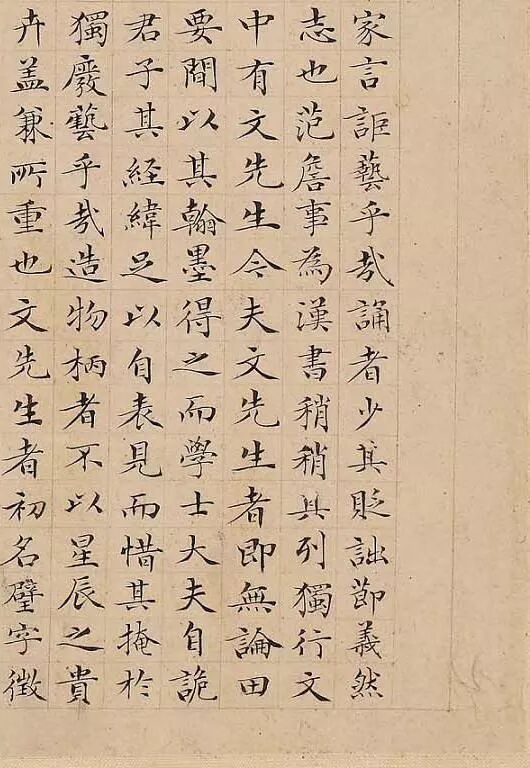 家言詎藝乎㢤誦者少其貶詘節義然
志也范詹事為漢書稍稍具列獨行文
中有文先生今夫文先生者即無論田
要間以其翰墨得之而學士大夫自詭
君子其経緯足以自表見而惜其掩於
獨廢藝乎㢤造物柄者不以星辰之貴
卉盖兼所重也文先生者初名璧字徴